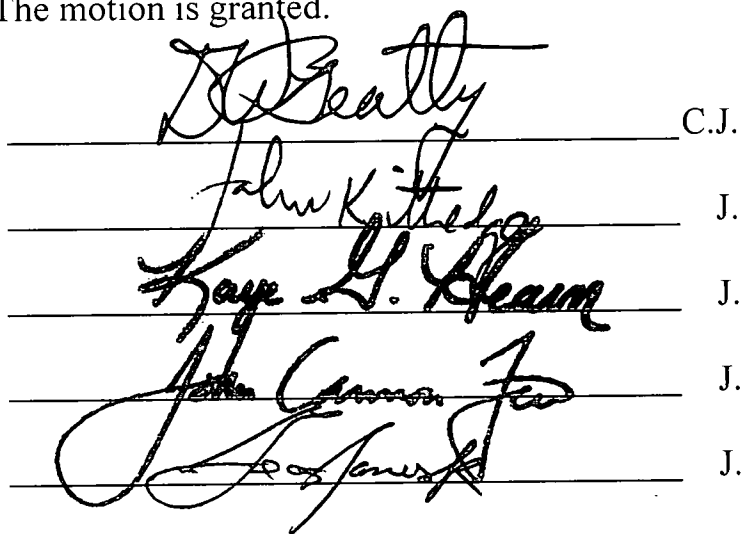 The motion is granted.
D W Beatty C.J.
John Kittredge J.
Kaye G. Hearn J.
John Cannon Few J.
Geo James Jr J.